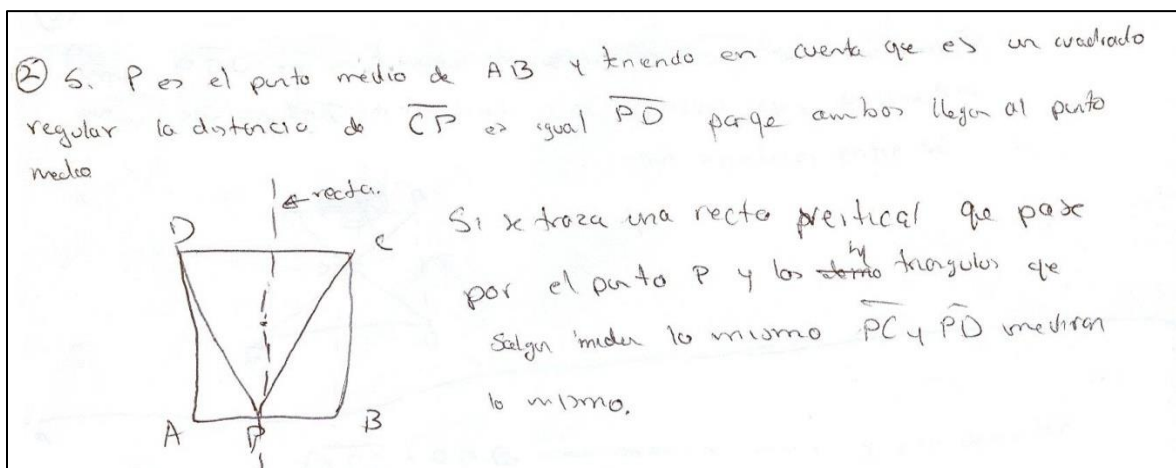 ② S. P es el punto médio de AB y teniendo en cuenta que es un cuadrado
regular la distancia de CP es igual PD porqe ambos llegan al punto
medio
← recta.
D
C
Si se traza una recta vertical que pase
por el punto P y los triangulos que
salgan miden lo mismo PC y PD mediran
lo mismo.
A P B